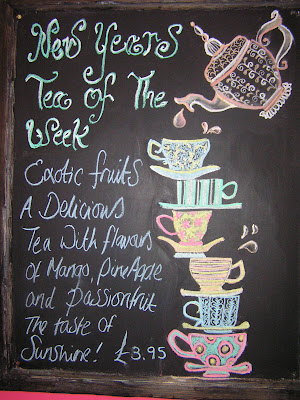 New Years
Tea Of The
Week
Exotic fruits
A Delicious
Tea with flavours
Of Mango, PineApple
and Passionfruit
The taste of
Sunshine! £3.95